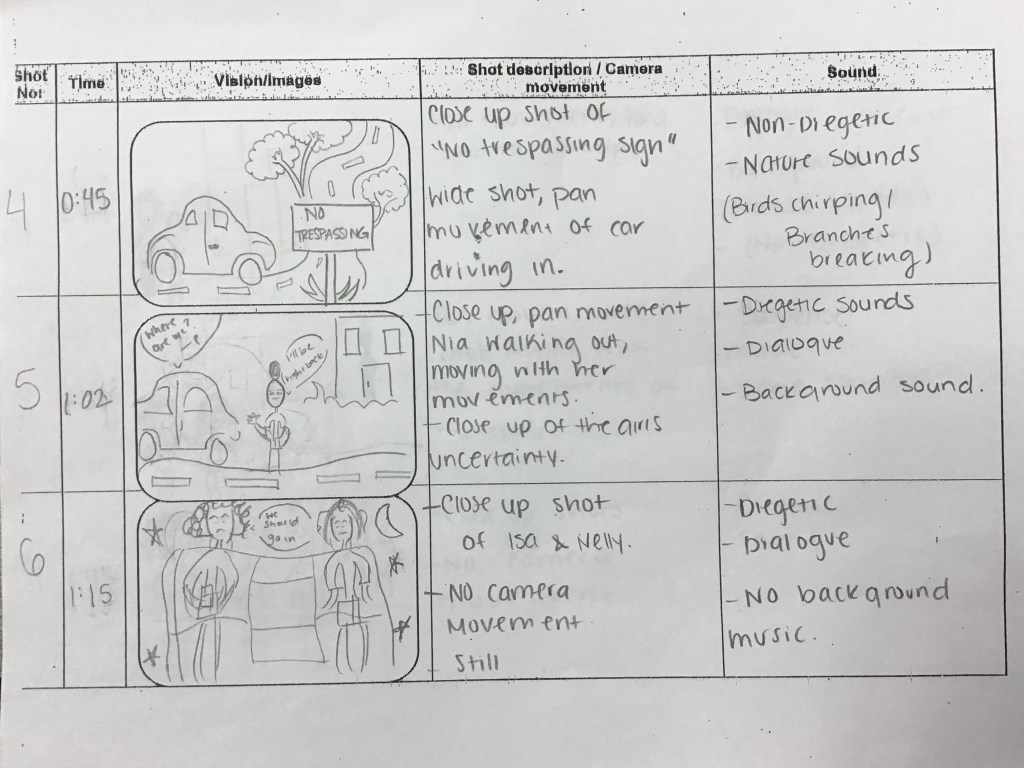 Shot
No:
Time
Vision/Images
Shot description / Camera
movement
Sound
4
0:45
NO
TRESPASSING
Close up shot of
"No trespassing sign"
Wide shot, pan
movement of car
driving in.
- Non-Diegetic
- Nature sounds
(Birds chirping /
Branches
breaking)
5
1:02
Where
are we?
I'll be
right back
- Close up, pan movement
Nia walking out,
moving with her
movements.
- Close up of the girls
uncertainty.
- Diegetic sounds
- Dialogue
- Background sound.
6
1:15
We
should
go in
- Close up shot
of Isa & Nelly.
- No camera
Movement
- Still
- Diegetic
- Dialogue
- No background
music.